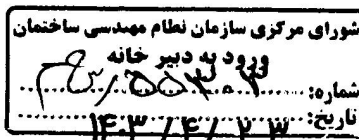 شورای مرکزی سازمان نظام مهندسی ساختمان
ورود به دبیر خانه
شماره:
تاریخ: ۱۴۰۳/۴/۲۳